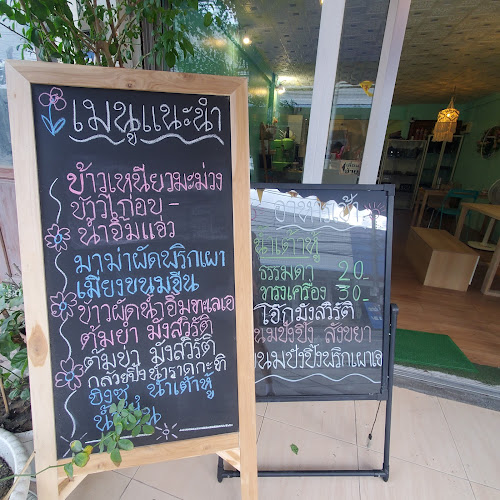 เมนูแนะนำ
ข้าวเหนียวมะม่วง
ข้าวไก่อบ -
น้ำจิ้มแจ่ว
มาม่าผัดพริกเผา
เมี่ยงขนมจีน
ข้าวผัดน้ำจิ้มทะเลเจ
ต้มยำ มังสวิรัติ
ต้มข่า มังสวิรัติ
กล้วยปิ้งน้ำราดกะทิ
น้ำเต้าหู้
อาหารเช้า
น้ำเต้าหู้
ธรรมดา 20.-
ทรงเครื่อง 30.-
โจ๊กมังสวิรัติ
ขนมปังปิ้ง สังขยา
ขนมปังปิ้งพริกเผาเจ